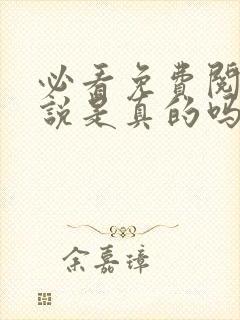 必看免费阅
說是真的吗
余嘉璋